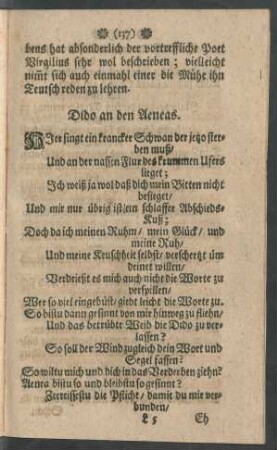 (137)
bens hat absonderlich der vortreffliche Poet
Virgilius sehr wol beschrieben; vielleicht
nim̃t sich auch einmahl einer die Mühe ihn
Teutsch reden zu lehren.
Dido an den Aeneas.
HIer singt ein krancker Schwan der jetzo ster-
ben muß/
Und an der nassen Flur des krummen Ufers
lieget;
Ich weiß ja wol daß dich mein Bitten nicht
besieget/
Und mir nur übrig ist ein schlaffer Abschieds-
Kuß;
Doch da ich meinen Ruhm/ mein Glück/ und
meine Ruh/
Und meine Keuschheit selbst/ verschertzt üm
deinet willen/
Verdrießt es mich auch nicht die Worte zu
verspillen/
Wer so viel eingebüst/ giebt leicht die Worte zu.
So bistu dann gesinnt von mir hinweg zu fliehn/
Und das betrübte Weib die Dido zu ver-
lassen?
So soll der Wind zugleich dein Wort und
Segel fassen?
So wiltu mich und dich in das Verderben ziehn?
Aenea bistu so und bleibstu so gesinnt?
Zerreissestu die Pflicht/ damit du mir ver-
bunden/
L 5
Eh